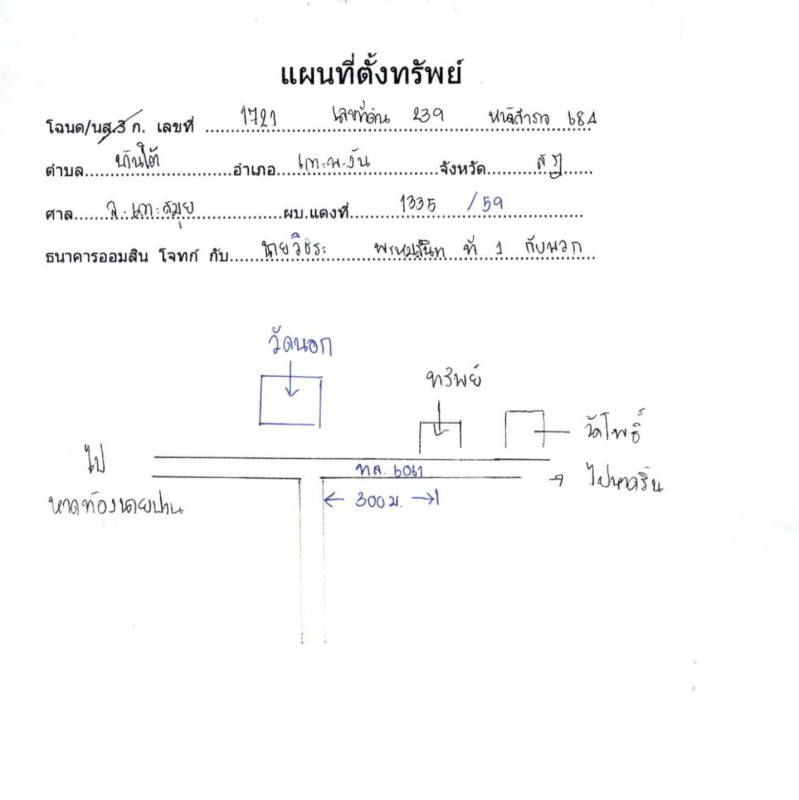 แผนที่ตั้งทรัพย์
โฉนด/นส.3 ก. เลขที่ 1721 เลขที่ดิน 239 หน้าสำรวจ 684
ตำบล บ้านใต้ อำเภอ เกาะพะงัน จังหวัด สฎ
ศาล จ.เกาะสมุย ผบ.แดงที่ 1335 /59
ธนาคารออมสิน โจทก์ กับ นายวิชิระ พรหมสนิท ที่ 1 กับพวก
วัดนอก
ทรัพย์
วัดโพธิ์
ไป
หาดท้องนายปาน
ทล. 6061
ไปหาดริ้น
300 ม.